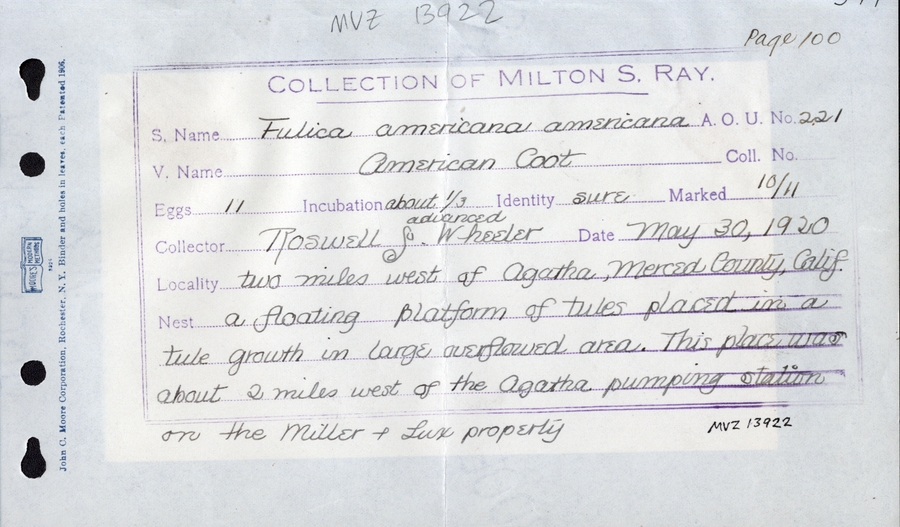 MVZ 13922
Page 100
COLLECTION OF MILTON S. RAY.
S. Name Fulica americana americana A. O. U. No. 221
V. Name American Coot Coll. No.
Eggs 11 Incubation about 1/3 advanced Identity sure Marked 10/11
Collector Roswell S. Wheeler Date May 30, 1920
Locality two miles west of Agatha, Merced County, Calif.
Nest a floating platform of tules placed in a
tule growth in large overflowed area. This place was
about 2 miles west of the Agatha pumping station
on the Miller + Lux property
MVZ 13922
John C. Moore Corporation, Rochester, N. Y. Binder and holes in leaves, each Patented 1906.
MOORE'S MODERN METHODS